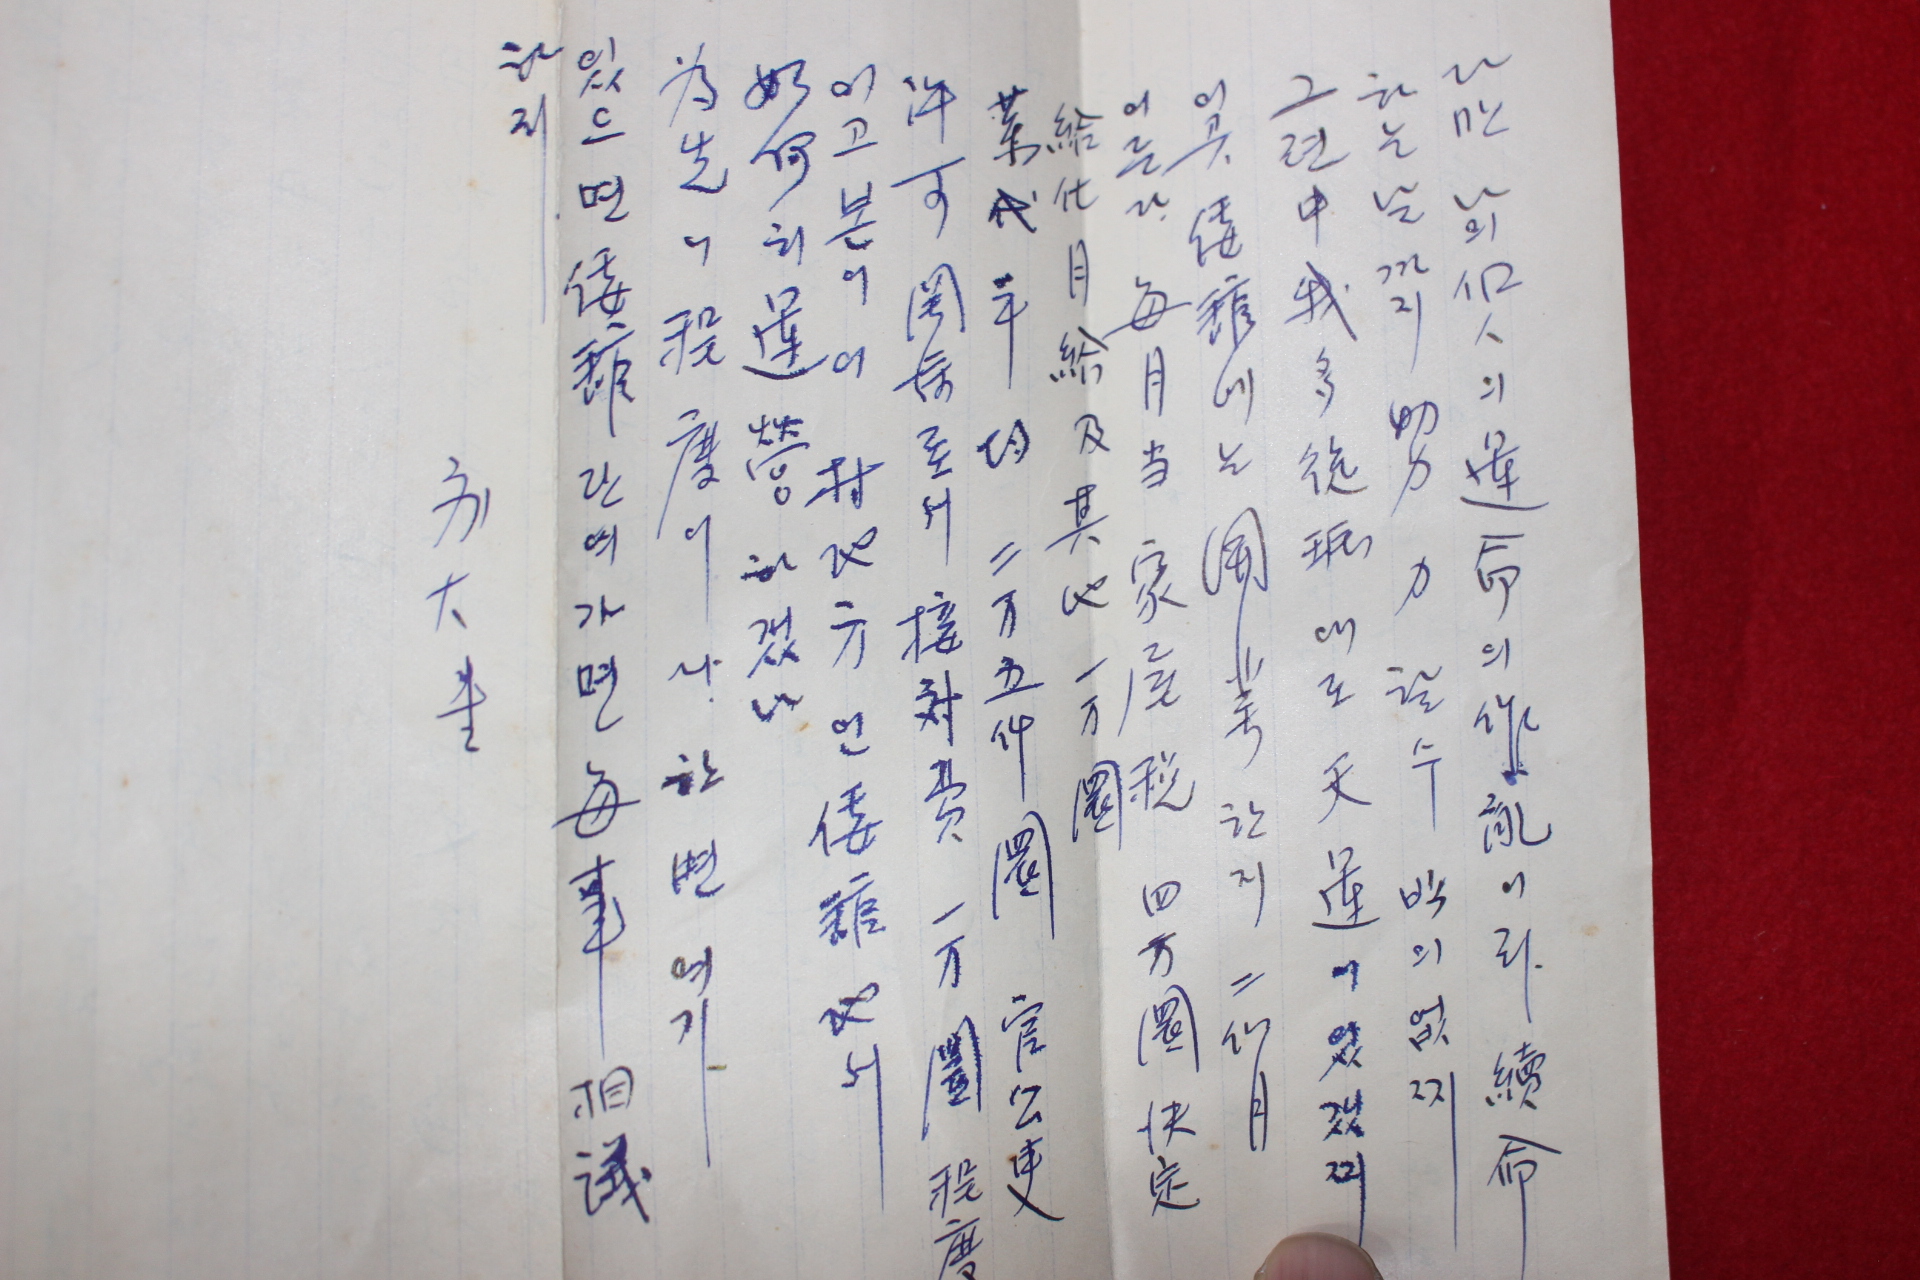 라만 나의 個人의 運命의 作亂이리. 續命
하는 날까지 努力 할 수 밖의 없지
그런 中 我 多 에도 天運이 있겠지
이곳 倭館에는 開業한지 二個月
이른다. 每月 当 家屋稅 四万圜 決定
給仕 月給 及 其他 一万圜
葉代 平均 二万五仟圜 官公吏
許可 関係로서 接対費 一万圜 程度
이고 본이 이 村地方인 倭館地서
如何히 運營하겠나
为先 이 程度이나. 한번 여기
있으면 倭館 단여가면 每事 相議
하지
大